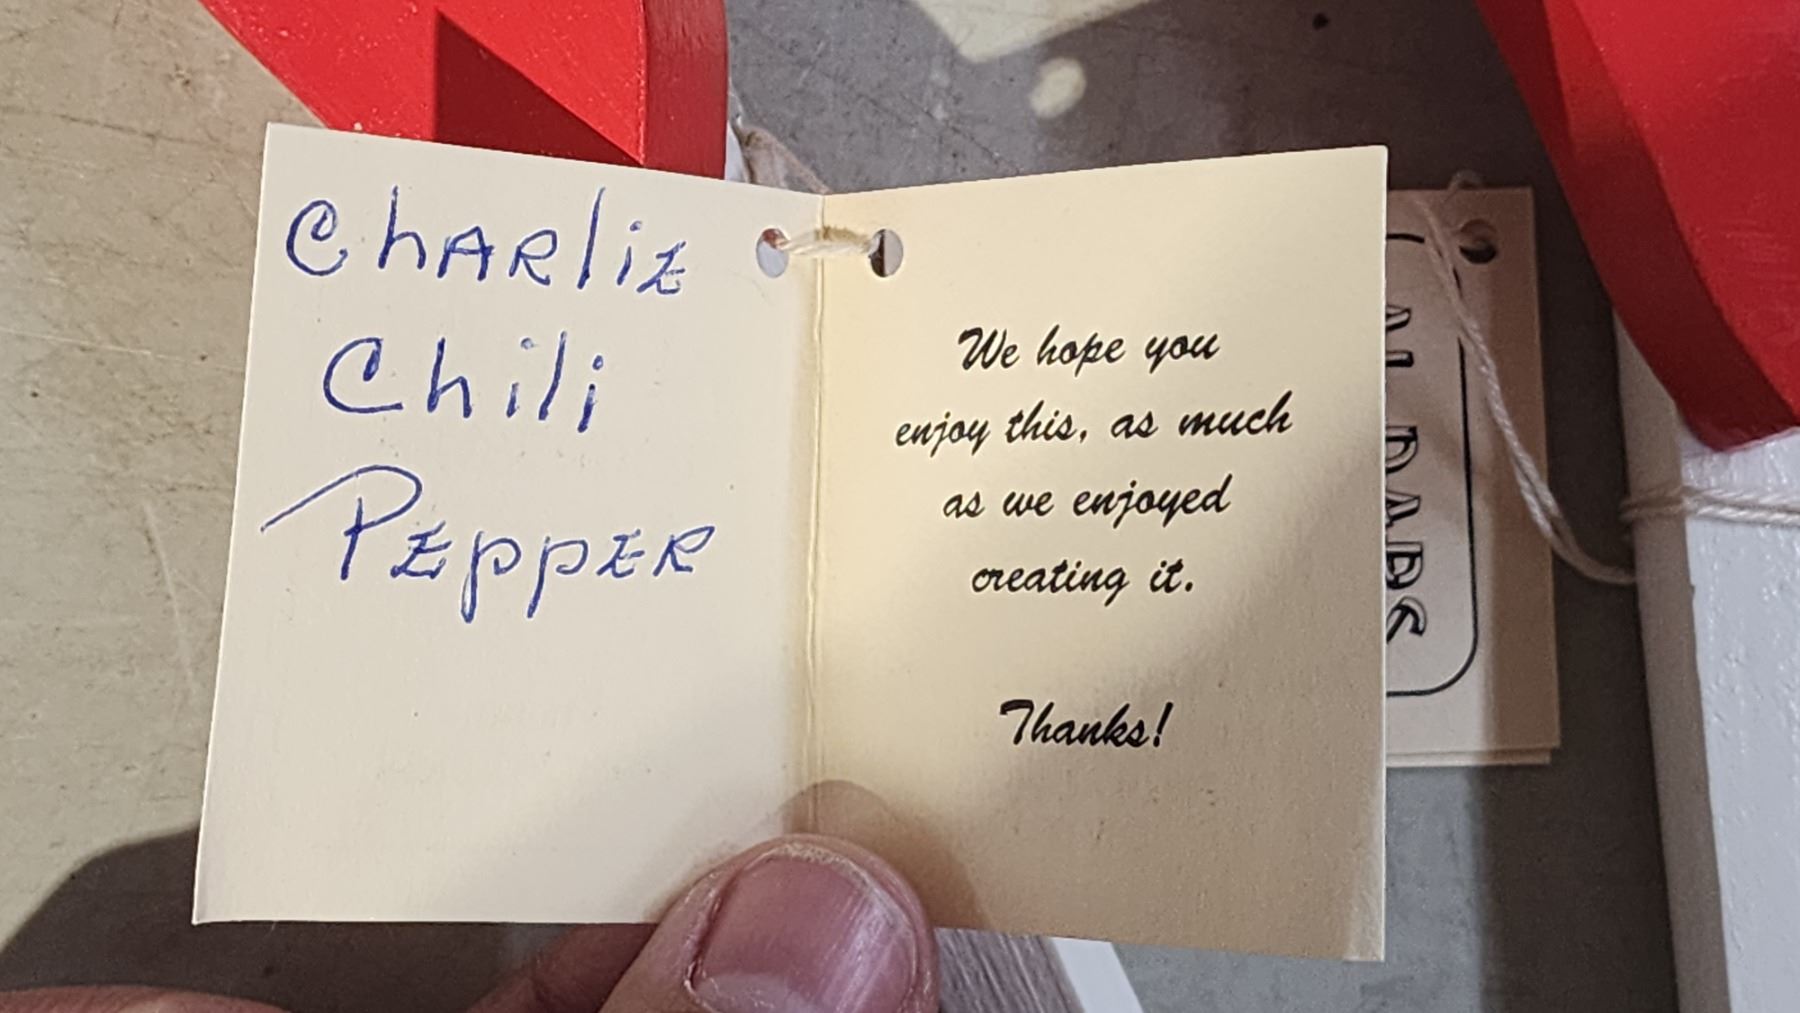 CHARLiE
Chili
PEppER
We hope you
enjoy this, as much
as we enjoyed
creating it.
Thanks!